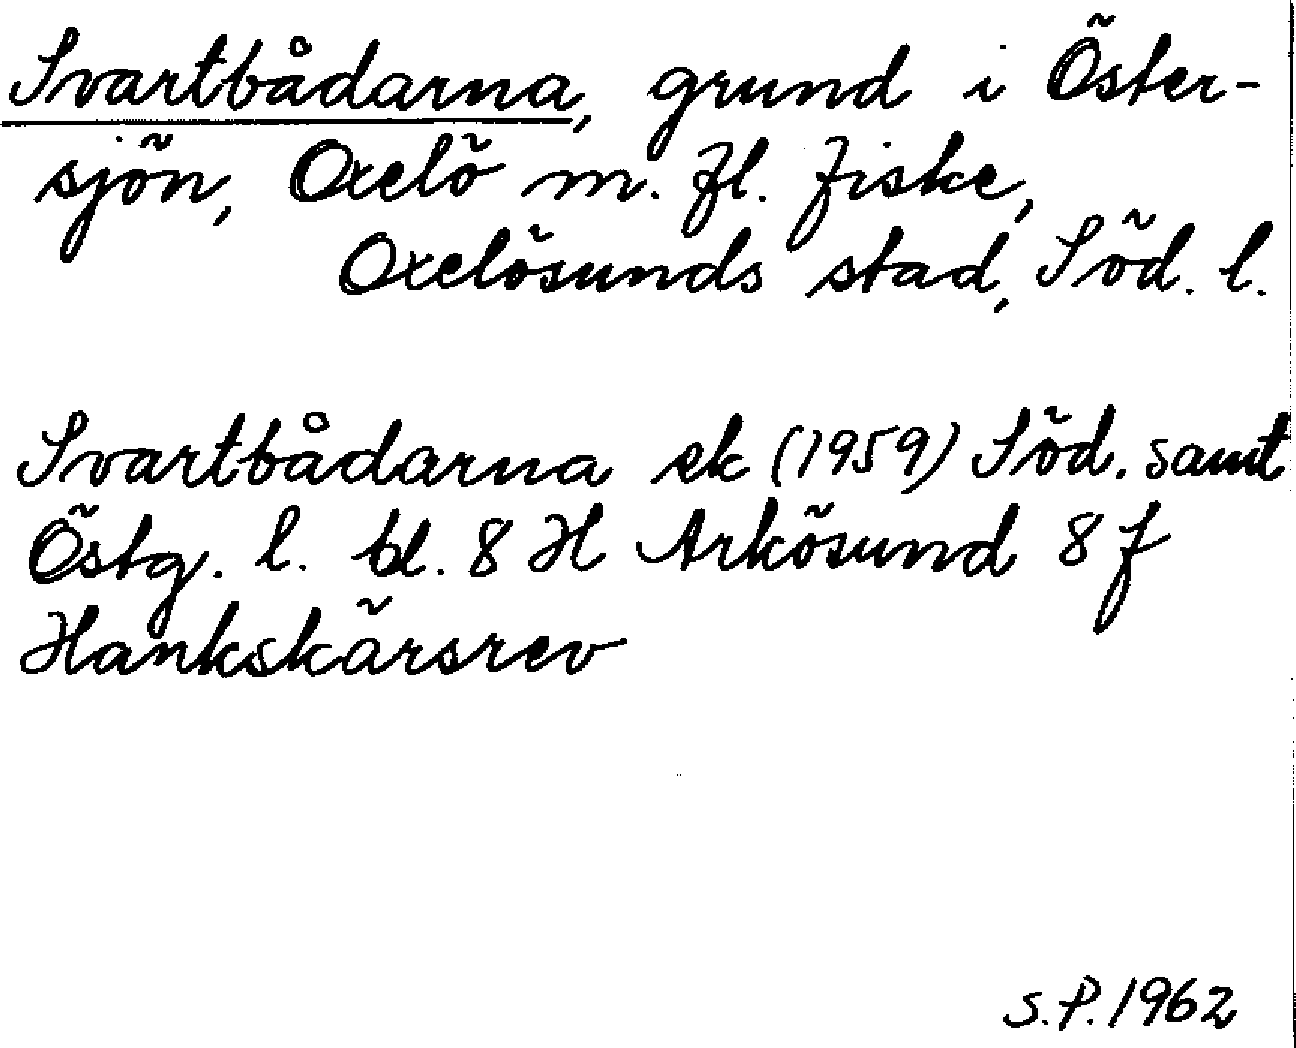 Svartbådarna, grund i Öster-
sjön, Oxelö m. fl. fiske,
Oxelösunds stad, Söd. l.
Svartbådarna ek (1959) Söd. samt
Östg. l. bl. 8 H Arkösund 8 f
Hankskärsrev
S.P. 1962